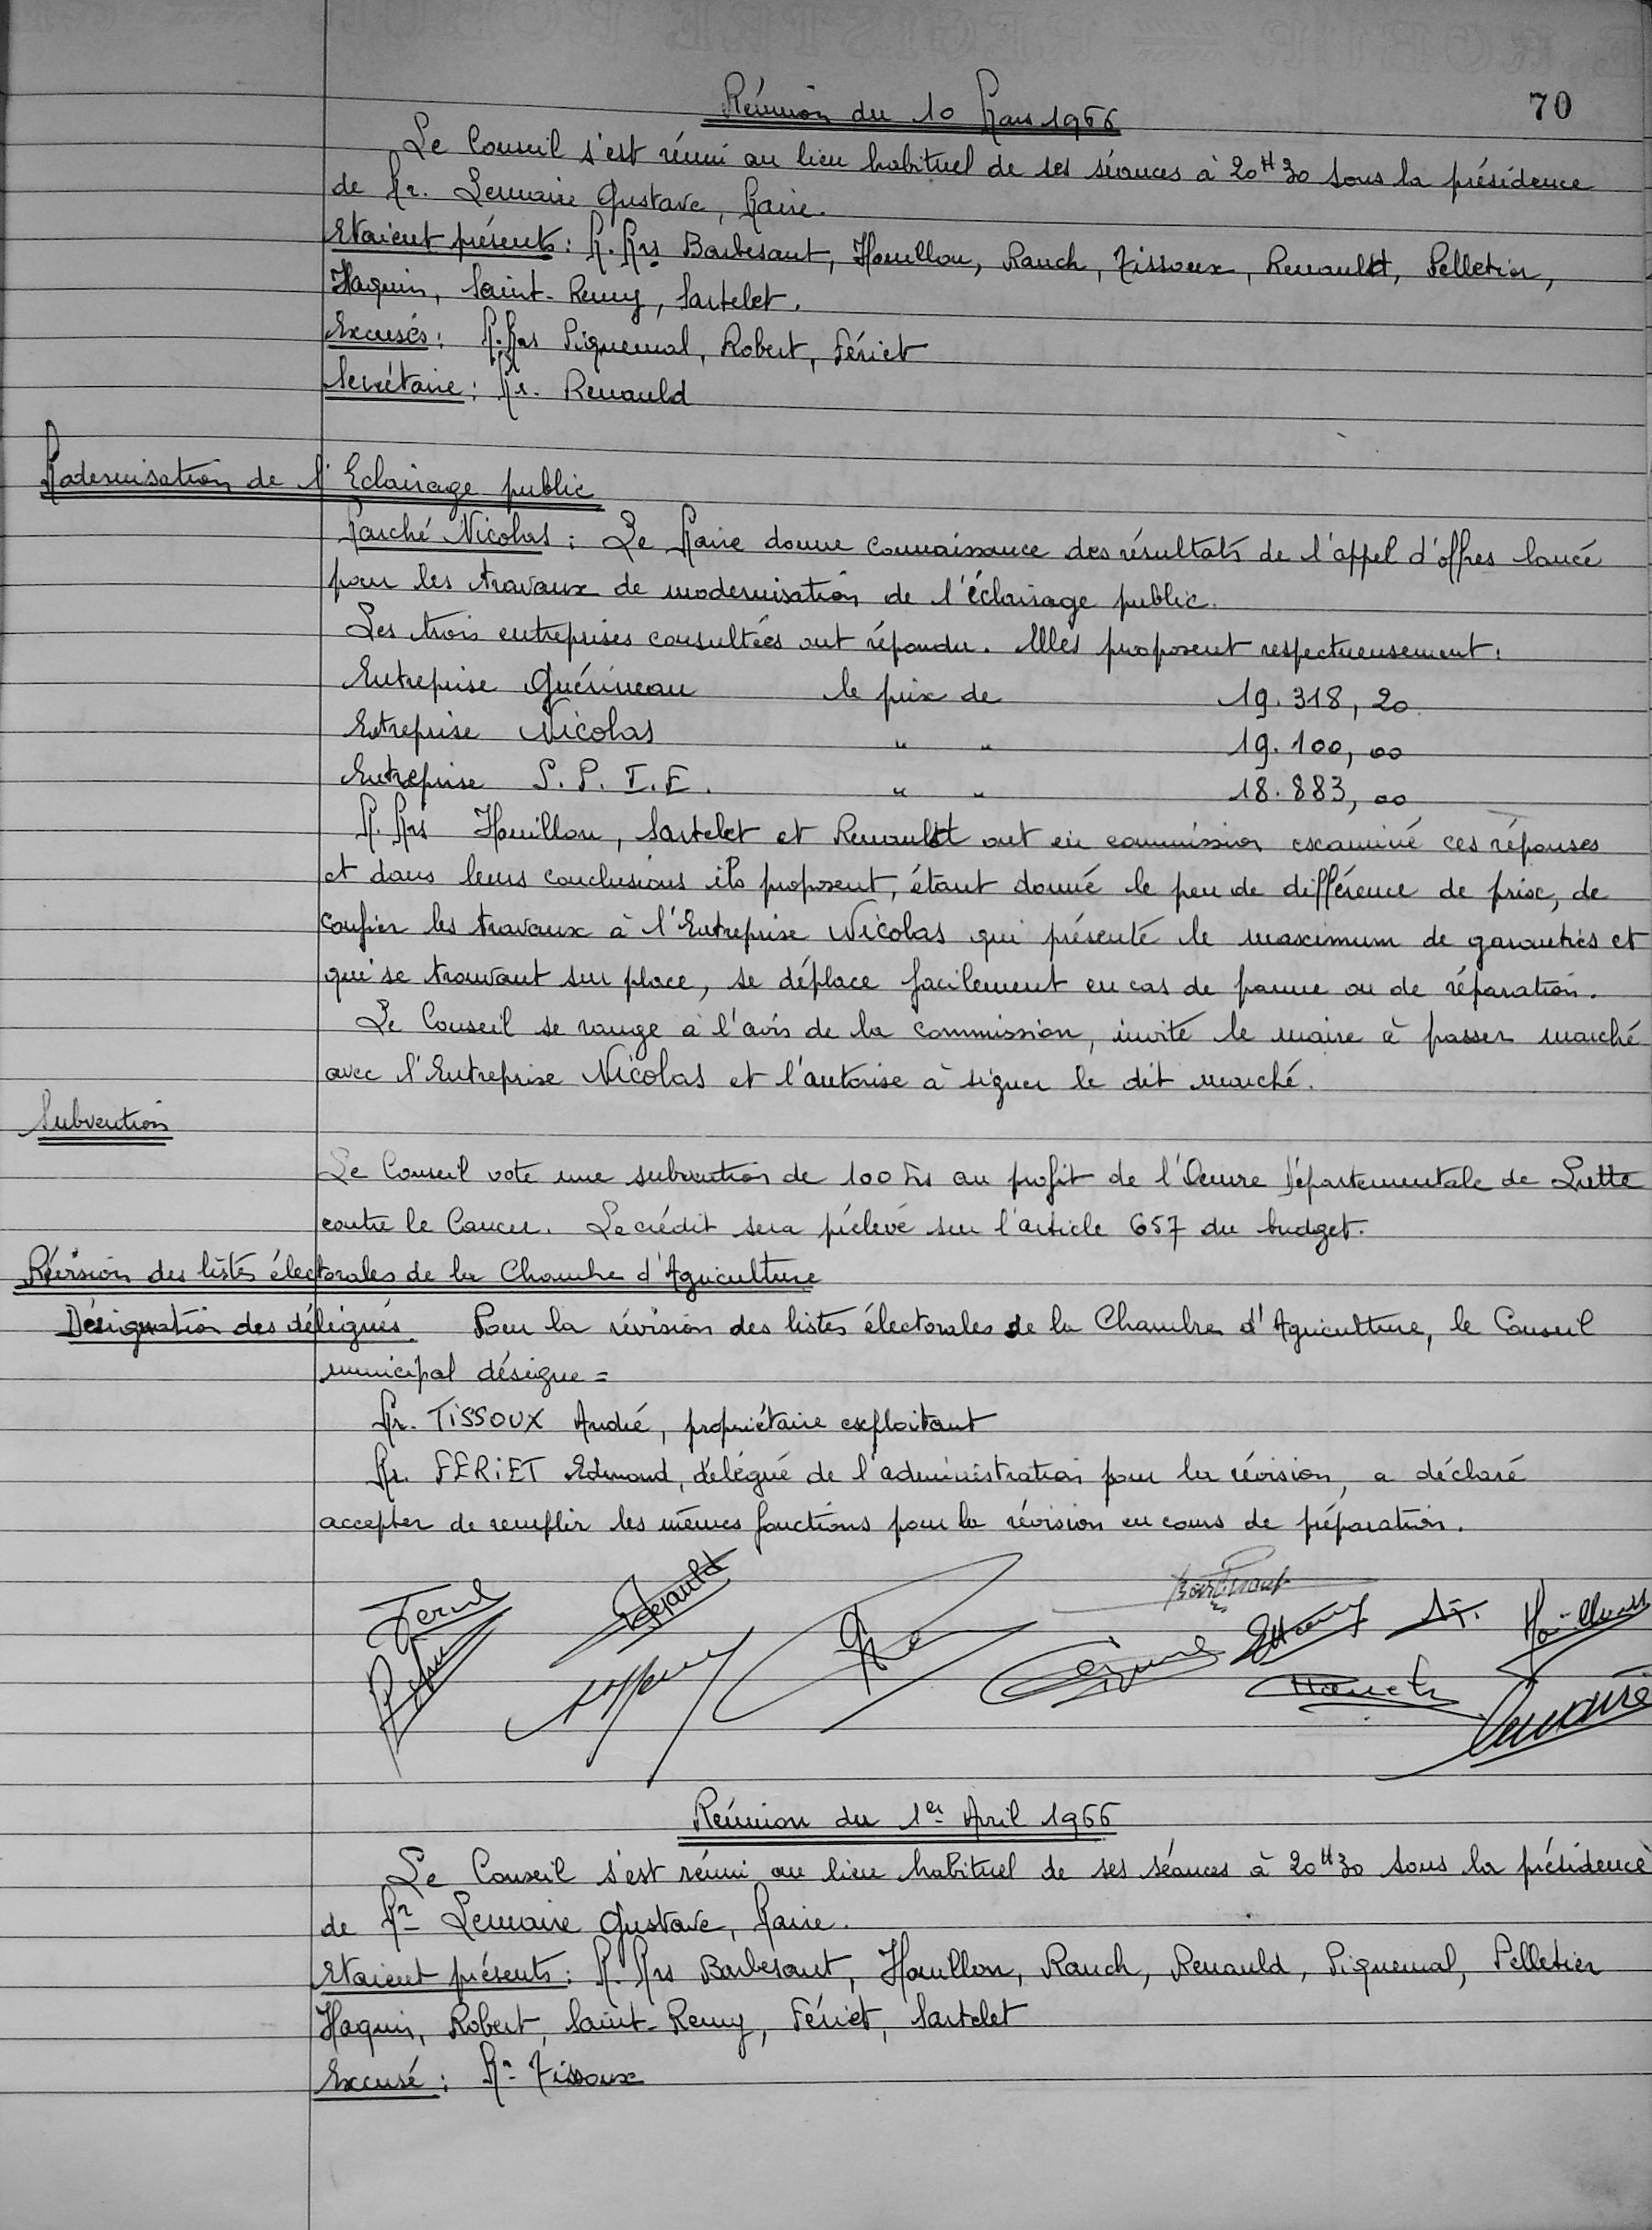 70
Réunion du 10 Mars 1966
Le Conseil s'est réuni au lieu habituel de ses séances à 20H30 sous la présidence
de Mr. Lemaire Gustave, Maire.
Etaient présents : M.Mrs Barbesant, Houillon, Rauch, Tissoux, Renault, Pelletier,
Haquin, Saint-Remy, Sartelet.
Excusés : M.Mrs Piquemal, Robert, Fériet
Secrétaire : Mr. Renauld
Modernisation de l'Eclairage public
Marché Nicolas : Le Maire donne connaissance des résultats de l'appel d'offres lancé
pour les travaux de modernisation de l'éclairage public.
Les trois entreprises consultées ont répondu. Elles proposent respectueusement :
Entreprise Guérineau le prix de 19.318,20
Entreprise Nicolas " " 19.100,00
Entreprise S.P.I.E. " " 18.883,00
M.Mrs Houillon, Sartelet et Renault ont en commission examiné ces réponses
et dans leurs conclusions ils proposent, étant donné le peu de différence de prix, de
confier les travaux à l'Entreprise Nicolas qui présente le maximum de garanties et
qui se trouvant sur place, se déplace facilement en cas de panne ou de réparation.
Le Conseil se range à l'avis de la commission, invite le maire à passer marché
avec l'Entreprise Nicolas et l'autorise à signer le dit marché.
Subvention
Le Conseil vote une subvention de 100 Frs au profit de l'Oeuvre Départementale de Lutte
contre le Cancer. Le crédit sera prélevé sur l'article 657 du budget.
Révision des listes électorales de la Chambre d'Agriculture
Désignation des délégués. Pour la révision des listes électorales de la Chambre d'Agriculture, le Conseil
municipal désigne =
Mr. TISSOUX André, propriétaire exploitant
Mr. FERIET Edmond, délégué de l'administration pour la révision, a déclaré
accepter de remplir les mêmes fonctions pour la révision en cours de préparation.
Renauld
Barbesant
Houillon
Rauch
Lemaire
Réunion du 1er Avril 1966
Le Conseil s'est réuni au lieu habituel de ses séances à 20H30 sous la présidence
de Mr Lemaire Gustave, Maire.
Etaient présents : M.Mrs Barbesant, Houillon, Rauch, Renauld, Piquemal, Pelletier
Haquin, Robert, Saint-Remy, Fériet, Sartelet
Excusé : Mr Tissoux